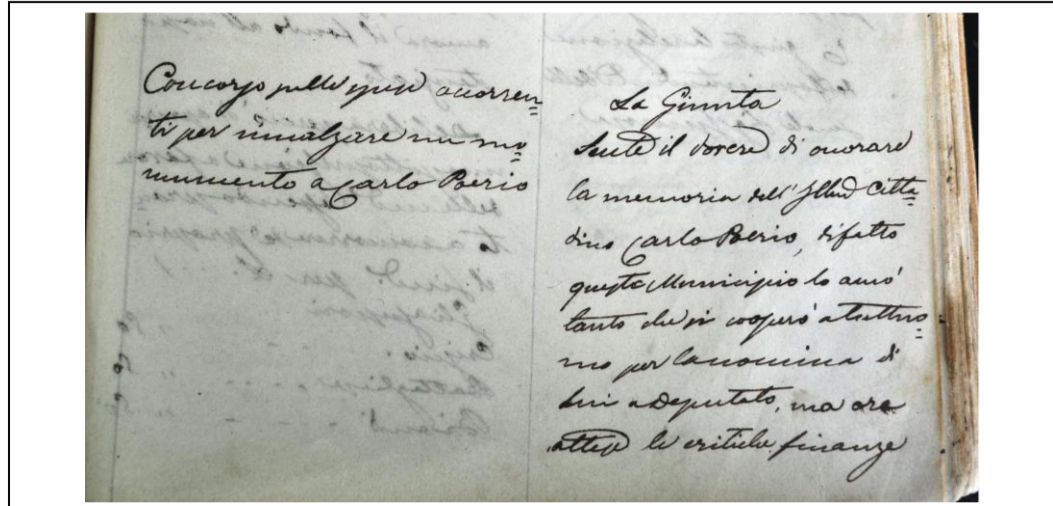 Concorso nelle spese occorren=
ti per innalzare un mo=
numento a Carlo Poerio
La Giunta
Sente il dovere di onorare
la memoria dell' Ill. Citta=
dino Carlo Poerio, difatto
questo Municipio lo amò
tanto che si cooperò a tutt'uo=
mo per la nomina di
lui a Deputato, ma ora
attese le critiche finanze